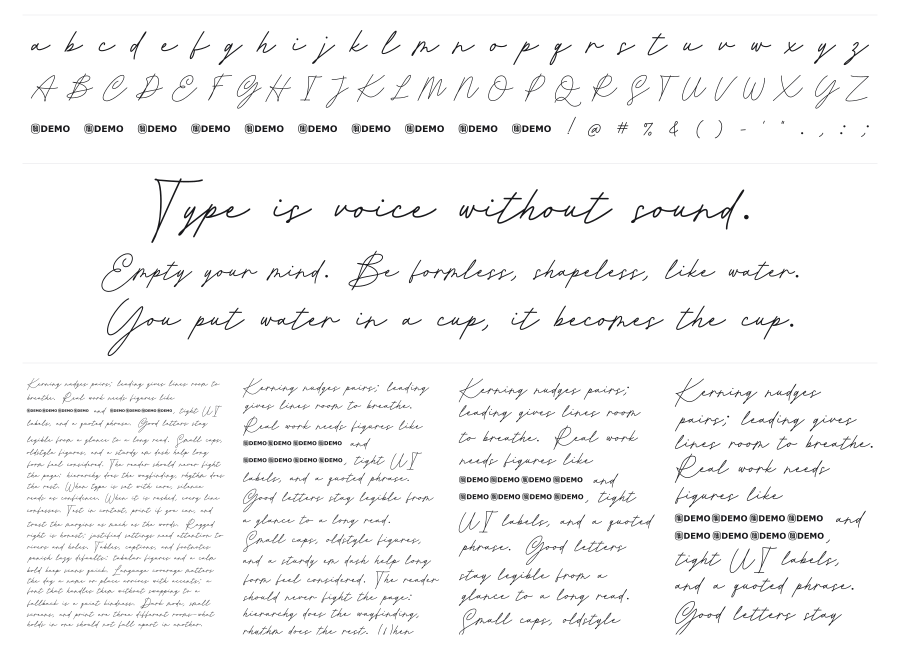 a b c d e f g h i j k l m n o p q r s t u v w x y z
A B C D E F G H I J K L M N O P Q R S T U V W X Y Z
DEMO DEMO DEMO DEMO DEMO DEMO DEMO DEMO DEMO DEMO ! @ # % & ( ) - ' " . , : ;
Type is voice without sound.
Empty your mind. Be formless, shapeless, like water.
You put water in a cup, it becomes the cup.
Kerning nudges pairs; leading gives lines room to
breathe. Real work needs figures like
DEMO DEMO DEMO DEMO and DEMO DEMO DEMO DEMO, tight UI
labels, and a quoted phrase. Good letters stay
legible from a glance to a long read. Small caps,
oldstyle figures, and a sturdy em dash help long
form feel considered. The reader should never fight
the page: hierarchy does the wayfinding, rhythm does
the rest. When type is set with care, silence
reads as confidence. When it is rushed, every line
confesses. Test in context, print if you can, and
trust the margins as much as the words. Ragged
right is honest; justified settings need attention to
rivers and holes. Tables, captions, and footnotes
punish lazy defaults; tabular figures and a calm
bold keep scans quick. Language coverage matters
the day a name or place arrives with accents; a
font that handles them without swapping to a
fallback is a quiet kindness. Dark mode, small
screens, and print are three different rooms—what
holds in one should not fall apart in another.
Kerning nudges pairs; leading
gives lines room to breathe.
Real work needs figures like
DEMO DEMO DEMO DEMO and
DEMO DEMO DEMO DEMO, tight UI
labels, and a quoted phrase.
Good letters stay legible from
a glance to a long read.
Small caps, oldstyle figures,
and a sturdy em dash help long
form feel considered. The reader
should never fight the page:
hierarchy does the wayfinding,
rhythm does the rest. When
Kerning nudges pairs;
leading gives lines room
to breathe. Real work
needs figures like
DEMO DEMO DEMO DEMO and
DEMO DEMO DEMO DEMO, tight
UI labels, and a quoted
phrase. Good letters
stay legible from a
glance to a long read.
Small caps, oldstyle
Kerning nudges
pairs; leading gives
lines room to breathe.
Real work needs
figures like
DEMO DEMO DEMO DEMO and
DEMO DEMO DEMO DEMO,
tight UI labels,
and a quoted phrase.
Good letters stay